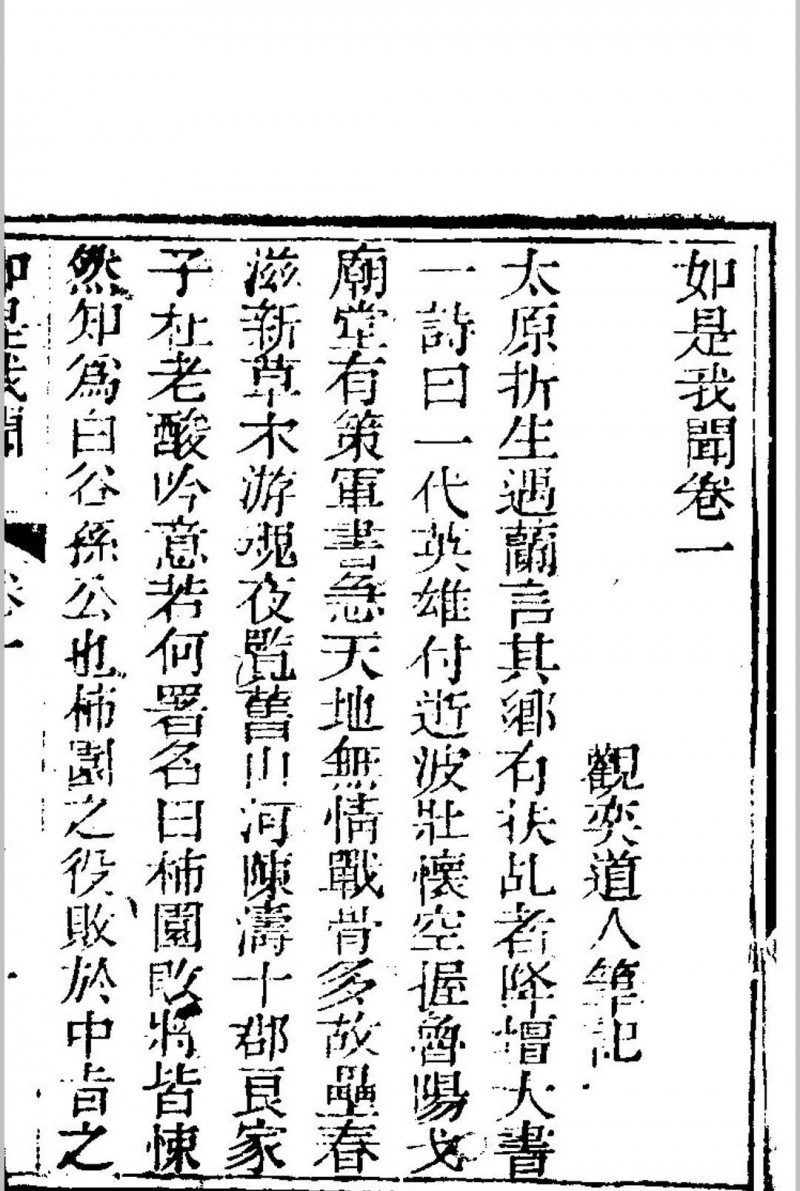 如是我聞卷一
觀奕道人筆記
太原折生遇蘭言其鄉有扶乩者降壇大書
一詩曰一代英雄付逝波壯懷空握魯陽戈
廟堂有策軍書急天地無情戰骨多故壘春
滋新草木游魂夜覽舊山河陳濤十郡良家
子杜老酸吟意若何署名曰柿園敗將皆悚
然知爲白谷孫公也柿園之役敗於中旨之
如是我聞 卷一 一